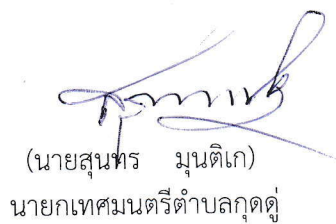 (นายสุนทร มุนติเก)
นายกเทศมนตรีตำบลกุดดู่